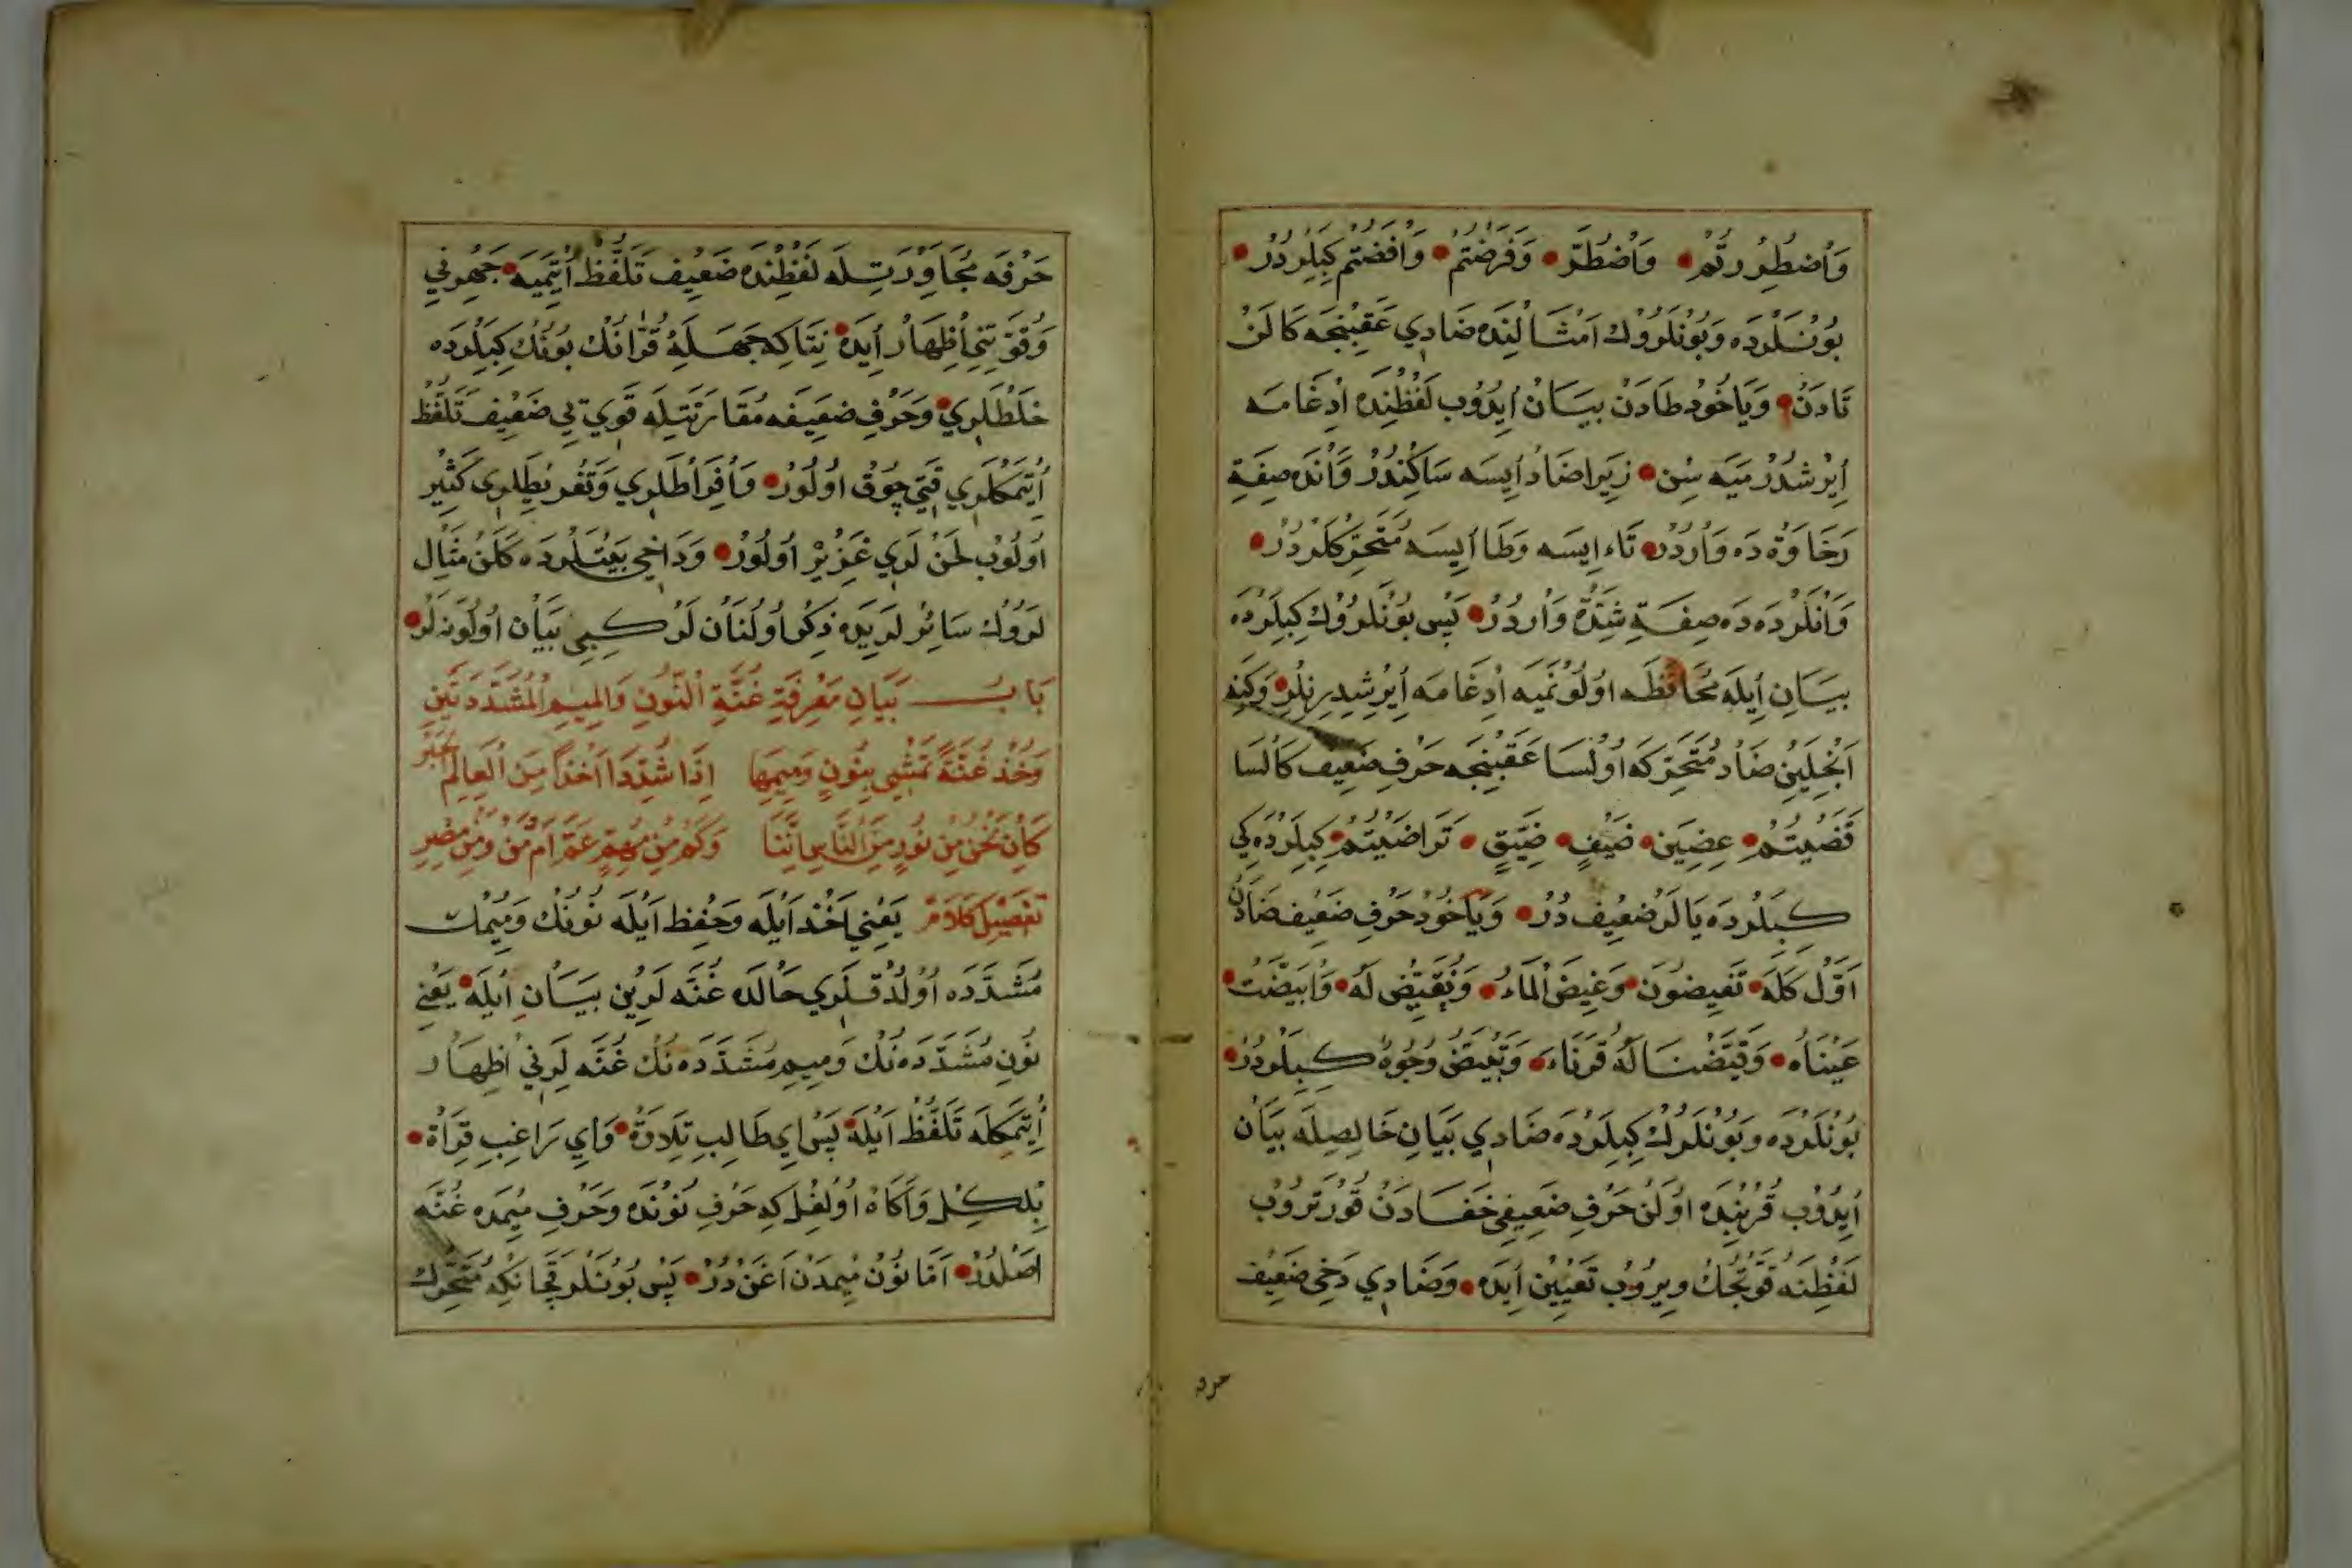 وَاُضْطِرُرْتُمْ وَاُضْطُرَّ وَفَرَضْتُمْ وَاَفَضْتُمْ كِبِلَرْدُرْ
بُوُنْلَرْدَه وَبُونْلَرُوكْ اَمْثَالِنْدَه ضَادِي عَقِبِنْجَه كَالَنْ
تَادَنْ وَيَاخُودْ طَادَنْ بَيَانْ اِيدُوبْ لَفْظِنْدَه اِدْغَامَه
اِيرْشْدُرْمَيَه سِنْ زِيرَا ضَادْ اِيسَه سَاكِنْدُرْ وَاَنْدَه صِفَةِ
رَخَاوَةْ دَه وَارْدُرْ تَاء اِيسَه وَطَا اِيسَه مُتَحَرِّكْلَرْدُرْ
وَاَنْلَرْدَه دَه صِفَةِ شِدَّةْ وَارْدُرْ پَسْ بُونْلَرُوكْ كِبِلَرْدَه
بَيَانِ اِيلَه مُحَافَظَه اُولُونْمَيَه اِدْغَامَه اِيرِشْدِيرِرْلَرْ وَكِنَه
اَنْجِلَيِنْ ضَادْ مُتَحَرِّكَه اُولْسَا عَقِبِنْجَه حَرْفِ ضَعِيفْ كَالْسَا
قَضَيْتُمْ عِضِينَ ضَيْفِ ضَيِّقٍ تَرَاضَيْتُمْ كِبِلَرْدَه كِي
كِبِلَرْدَه يَالَرْ ضَعِيفْ دُرْ وَيَاخُودْ حَرْفِ ضَعِيفْ ضَادَنْ
اَوَّلْ كَلَه تَفِيضُونَ وَغِيضَ الْمَاءُ وَنُقَيِّضْ لَهُ وَابْيَضَّتْ
عَيْنَاهُ وَقَيَّضْنَا لَهُمْ قُرَنَاءَ وَتَبْيَضُّ وُجُوهٌ كِبِلَرْدُرْ
بُونْلَرْدَه وَبُونْلَرُكْ كِبِلَرْدَه ضَادِي بَيَانِ خَالِصِلَه بَيَانْ
اِيدُوبْ قُرْبِنْدَه اُولَنْ حَرْفِ ضَعِيفِي خَفَادَنْ قُورْتَرُوبْ
لَفْظِنَه قُوَّتْجُكْ وِيرُوبْ تَعْيِينْ اِيدَه وَضَادِي دَخِي ضَعِيفْ
حرفه
حَرْفَه مُجَاوَرَتِلَه لَفْظِنْدَه ضَعِيفْ تَلَفُّظْ اِتْمَيَه جَهْرِنِي
وَقُوَّتِنِي اِظْهَارْ اِيدَه نِتَاكِه جَهَلَةِ قُرَّانُكْ بُونُكْ كِبِلَرْدَه
خَلْطْلَرِي وَحَرْفِ ضَعِيفَه مُقَارَنَتِلَه قَوِي يِي ضَعِيفْ تَلَفُّظْ
اِتْمَكْلَرِي قَتِي چُوقْ اُولُورْ وَاِفْرَاطْلَرِي وَتَفْرِيطْلَرِي كَثِيرْ
اُولُوبْ لَحْنْ لَرِي غَزِيرْ اُولُورْ وَدَاخِي بَيْتْلَرْدَه كَلَنْ مِثَالْ
لَرُوكْ سَائِرْ لَرِيدَه ذِكْرْ اُولُنَانْ لَرْ كِبِي بَيَانْ اُولُونَه لَرْ
بَابُ بَيَانِ مَعْرِفَةِ غُنَّةِ النُّونِ وَالْمِيمِ الْمُشَدَّدَتَيْنِ
وَخُذْ غُنَّةً تَمْشِي بِنُونٍ وَمِيمِهَا اِذَا شُدِّدَا اَخْذًا مِنَ الْعَالِمِ الْحَبْرِ
كَاِنْ نَحْنُ مِنْ نُورٍ مِنَ النَّاسِ اِنَّنَا وَكَمْ مِنْ مُهِمٍّ عَمَّ اَمْ مَنْ وَمِنْ مِصْرِ
تَفْصِيلِ كَلَامْ يَعْنِي اَخْذْ اَيْلَه وَحِفْظْ اَيْلَه نُونُكْ وَمِيمُكْ
مُشَدَّدَه اُولْدُقْلَرِي حَالْدَه غُنَّه لَرِينْ بَيَانْ اِيلَه يَعْنِي
نُونِ مُشَدَّدَه نُكْ وَمِيمِ مُشَدَّدَه نُكْ غُنَّه لَرِنِي اِظْهَارْ
اِتْمَكِلَه تَلَفُّظْ اَيْلَه پَسْ اِي طَالِبِ تِلَاوَةْ وَاِي رَاغِبِ قِرَاةْ
بِلْكِلْ وَآكَاهْ اُولْغِلْ كِه حَرْفِ نُونْدَه وَحَرْفِ مِيمْدَه غُنَّه
اَصْلْدُرْ اَمَّا نُونْ مِيمْدَنْ اَغَنْ دُرْ پَسْ بُونْلَرْ قَچَانْكِه مُتَحَرِّكْ